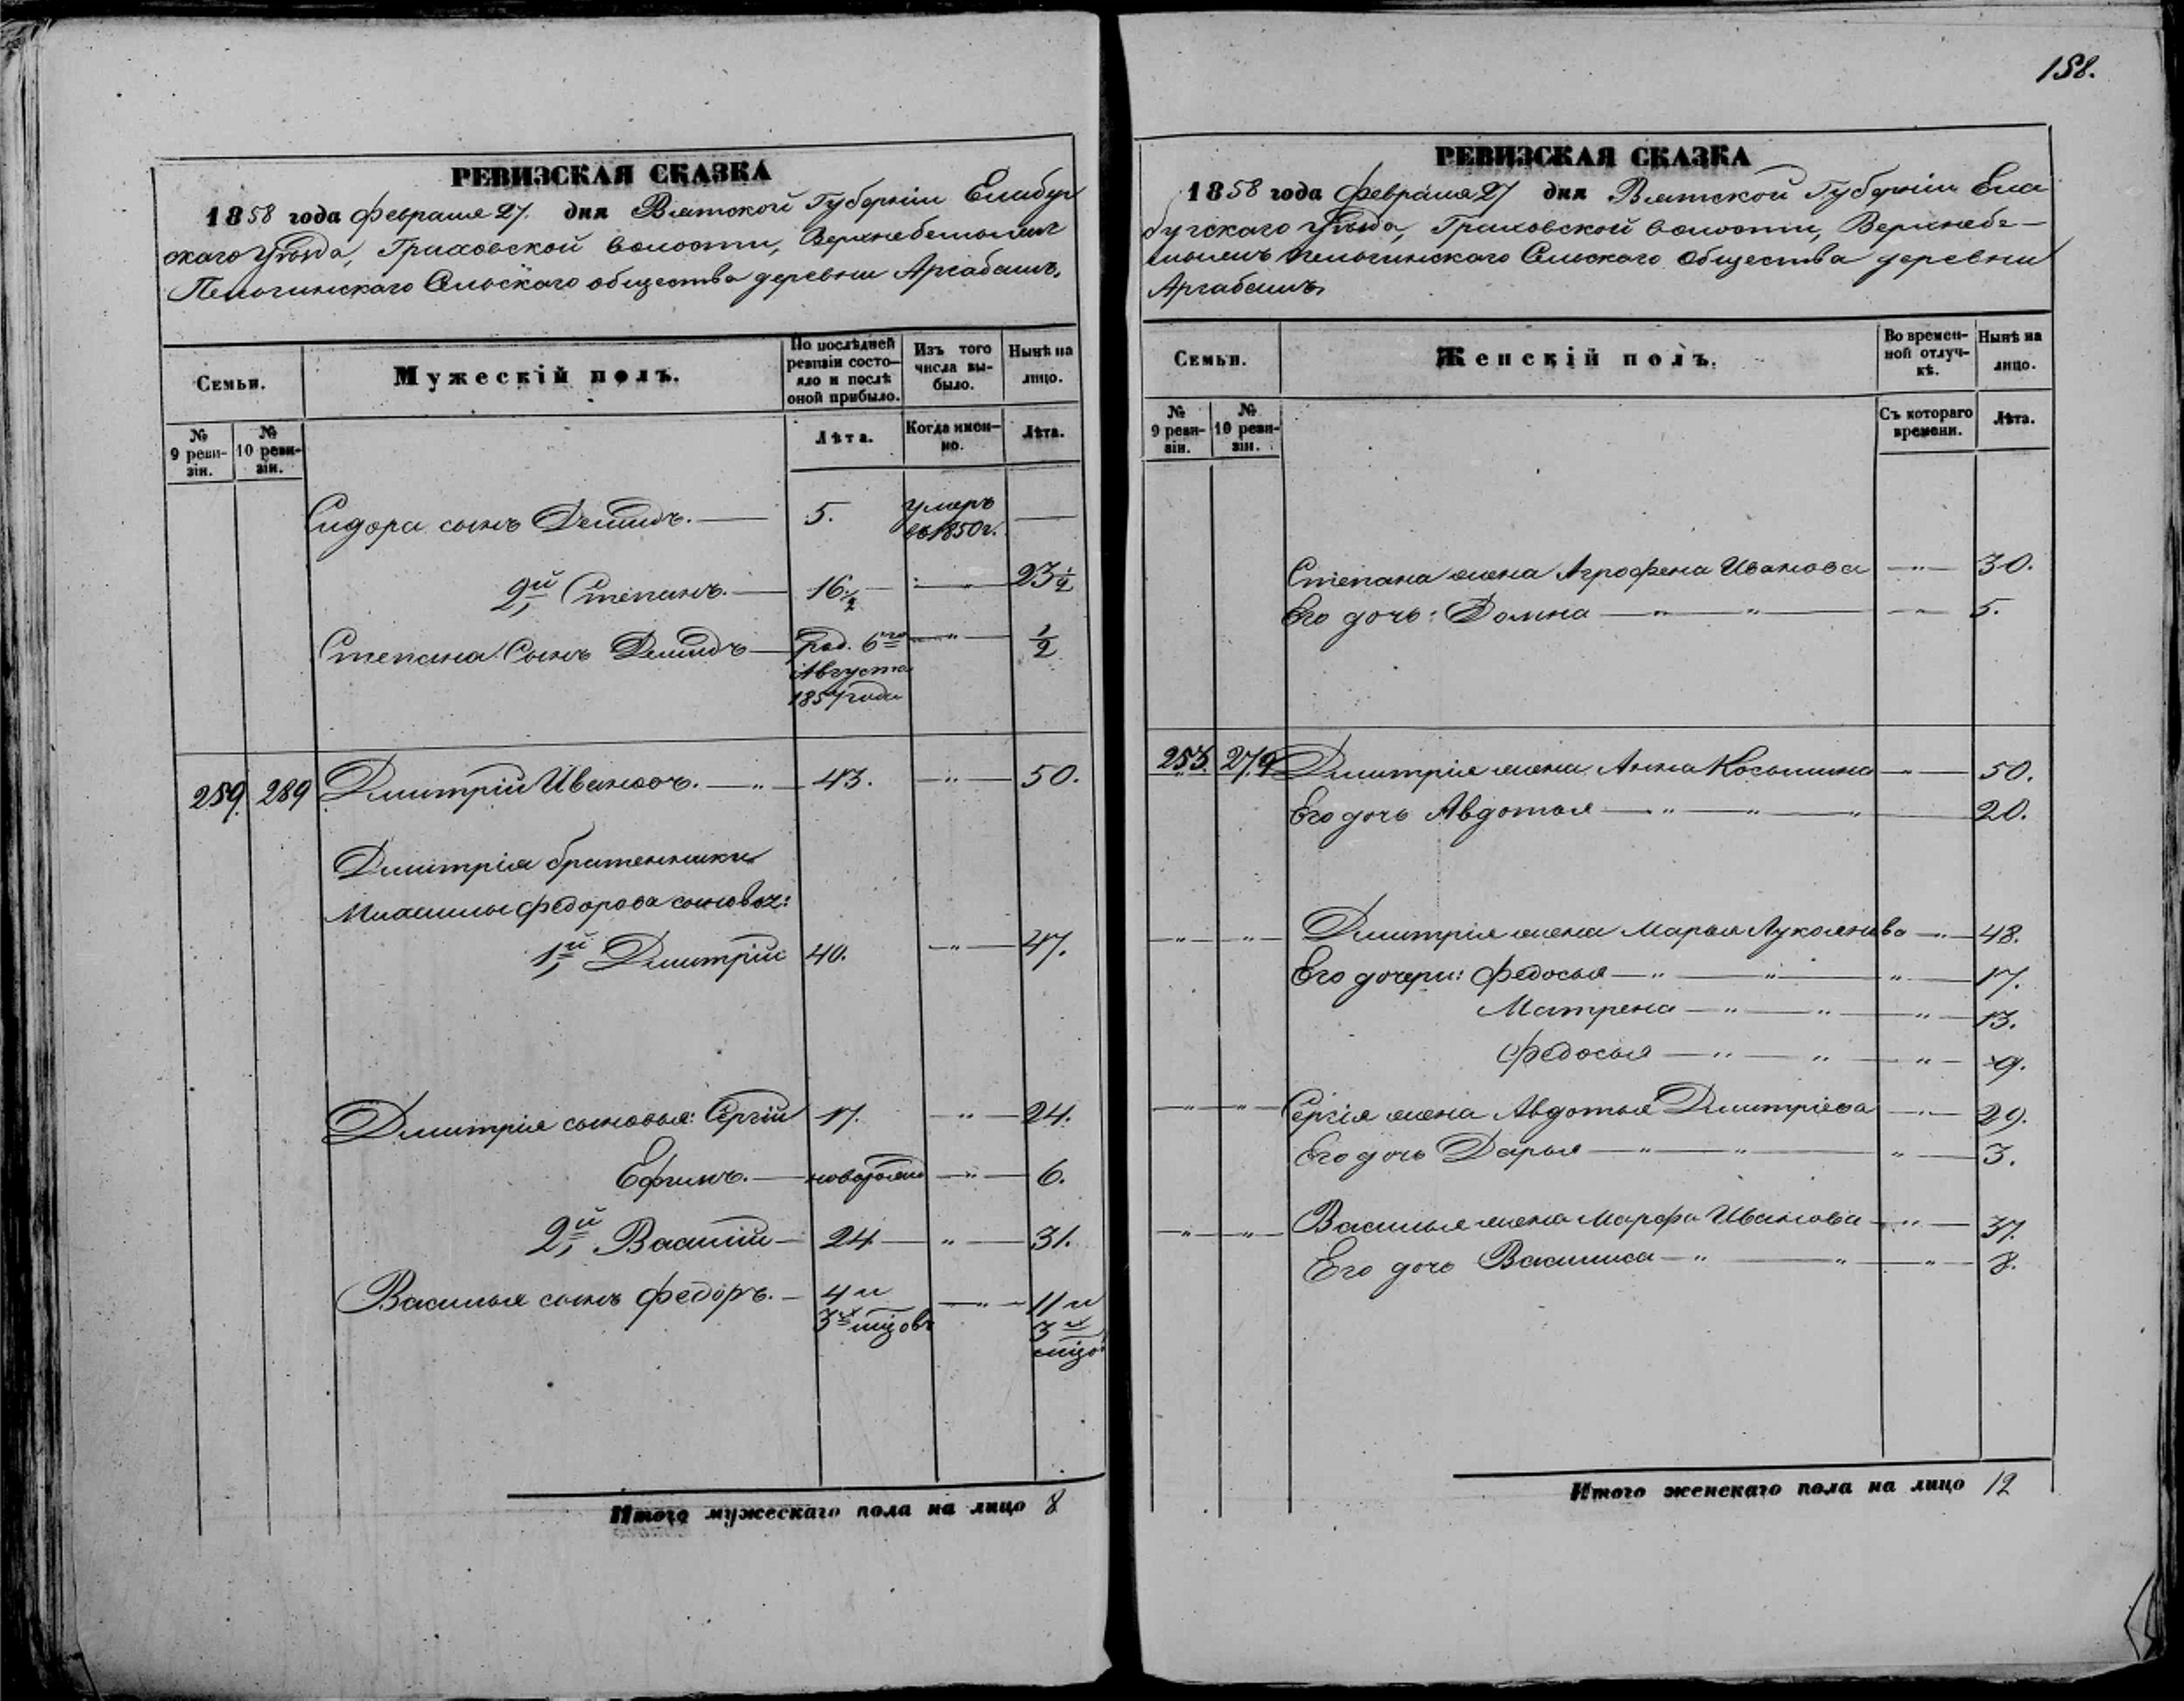 158.
РЕВИЗСКАЯ СКАЗКА
1858 года Февраля 27. дня Вятской Губерніи Елабуж
скаго Уѣзда, Граховской волости,
Сельскаго общества деревни Аргабашъ,
Семьи.
Мужескій полъ.
По послѣдней ревизіи состояло и послѣ оной прибыло.
Изъ того числа выбыло.
Нынѣ на лицо.
№ 9 ревизіи.
№ 10 ревизіи.
Лѣта.
Когда именно.
Лѣта.
Сидора сынъ Демидъ. — 5. умеръ въ 1850 г. —
2й Степанъ. — 16 1/2 — " — 23 1/2
Степана Сынъ Демидъ — род. 6го Августа 1857 года — " — 1/2
259. 289 Дмитрій Ивановъ. — " — 43. — " — 50.
Дмитрія братенники
Михаилы Федорова сыновья:
1й Дмитрій 40. — " — 47.
Дмитрія сыновья: Сергій 17. — " — 24.
Ефимъ. — новорожд — " — 6.
2й Василій — 24 — " — 31.
Василья сынъ Федоръ. — 4 и 3х мцовъ — " — 11 и 3х мцов
Итого мужескаго пола на лицо 8
РЕВИЗСКАЯ СКАЗКА
1858 года Февраля 27 дня Вятской Губерніи Ела
бугскаго Уѣзда, Граховской волости,
Сельскаго Общества деревни
Аргабашъ
Семьи.
Женскій полъ.
Во временной отлучкѣ.
Нынѣ на лицо.
№ 9 ревизіи.
№ 10 ревизіи.
Съ котораго времени.
Лѣта.
Степана жена Агрофена Иванова — " — 30.
Его дочь: Домна — " — " — " — 5.
253. 279 Дмитрія жена Анна Косьмина — " — 50.
Его дочь Авдотья — " — " — " — 20.
— " — " — Дмитрія жена Марья Лукоянова — " — 48.
Его дочери: Федосья — " — " — " — 17.
Матрена — " — " — " — 13.
Федосья — " — " — " — 9.
— " — " — Сергія жена Авдотья Дмитріева — " — 29.
Его дочь Дарья — " — " — " — 3.
— " — " — Василья жена Марфа Иванова — " — 37.
Его дочь Василиса — " — " — " — 8.
Итого женскаго пола на лицо 12